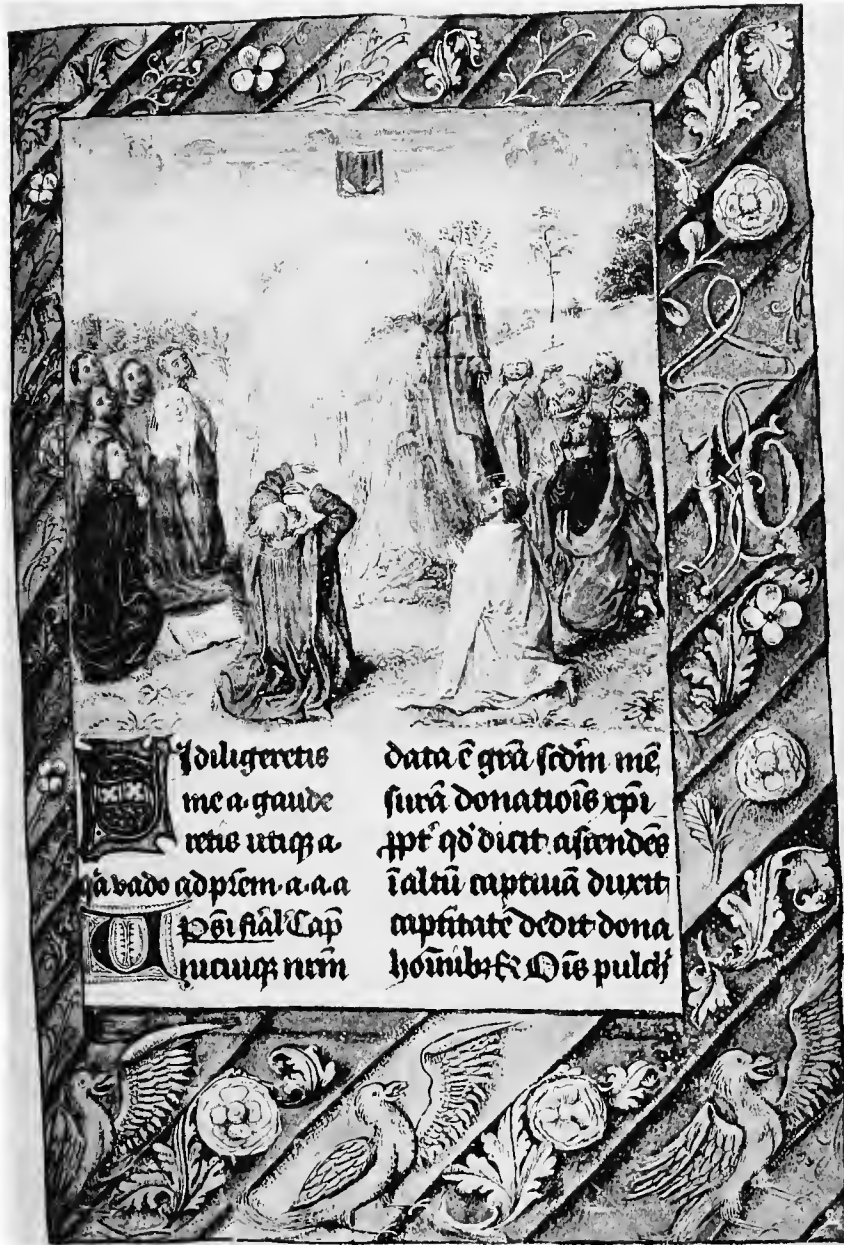 Si diligeretis
me a. gaude
retis utiqꝫ a.
qa vado ad prēm. a. a. a
Psi fiāl Cap̄
Unicuiqꝫ nrm̄
data ē grā scdm̄ mē
surā donatiōis xp̄i
ꝓpt' qd' dicit ascendēs
ī altū captiuā duxit
captitatē dedit dona
hoīnibꝫ ꝶ Oīs pulch'